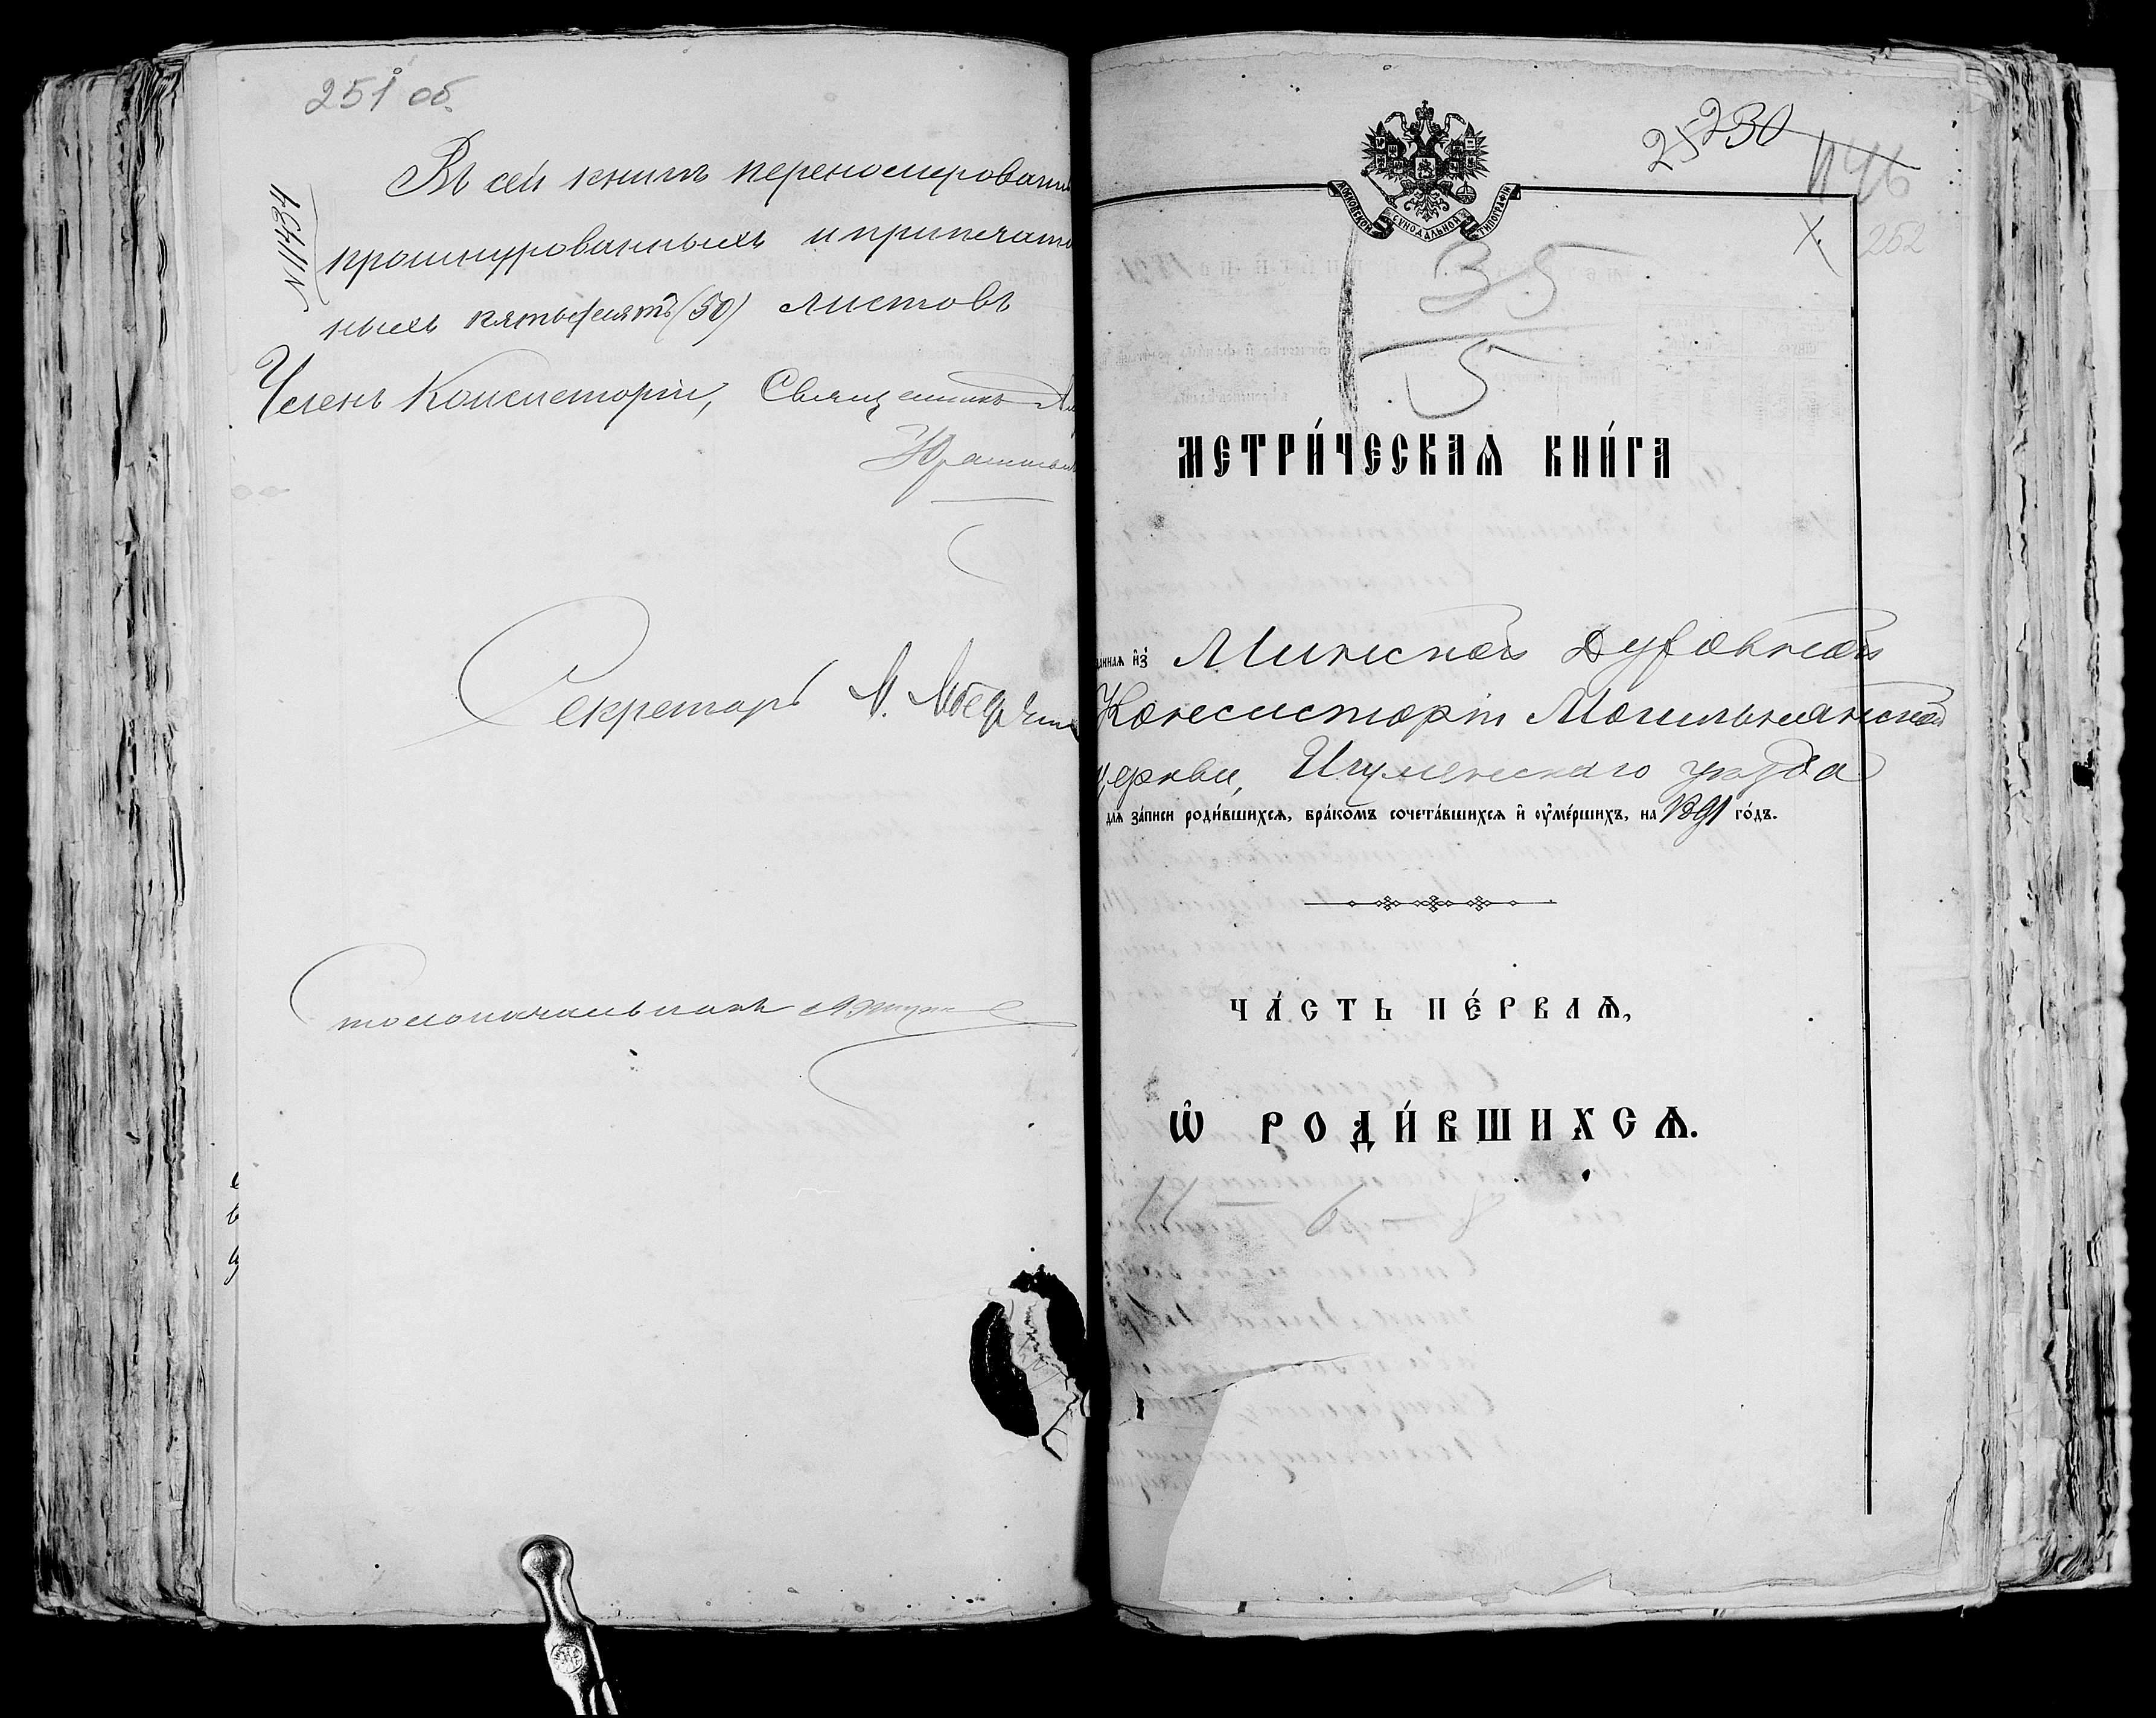 251 об.
№11434
Въ сей книгѣ перенумерован
прошнурованныхъ и припечатан
ныхъ пятьдесятъ (50) листовъ
Членъ Консисторіи, Священникъ
Секретарь
Столоначальникъ
25 230
146
X. 252
МОСКОВСКОЙ СѴНОДАЛЬНОЙ ТИПОГРАФІИ
35
5
МЕТРИ́ЧЕСКАѦ КНИ́ГА
даннаѧ и҆з̾ Минской Духовной
Консисторіи Могильнянской
церкви, Игуменскаго уѣзда
длѧ за́писи роди́вшихсѧ, бра́комъ сочета́вшихсѧ и҆ ᲂу҆ме́ршихъ, на 1891 го́дъ.
ЧА́СТЬ ПЕ́РВАѦ,
Ѡ҆ РОДИ́ВШИХСѦ.